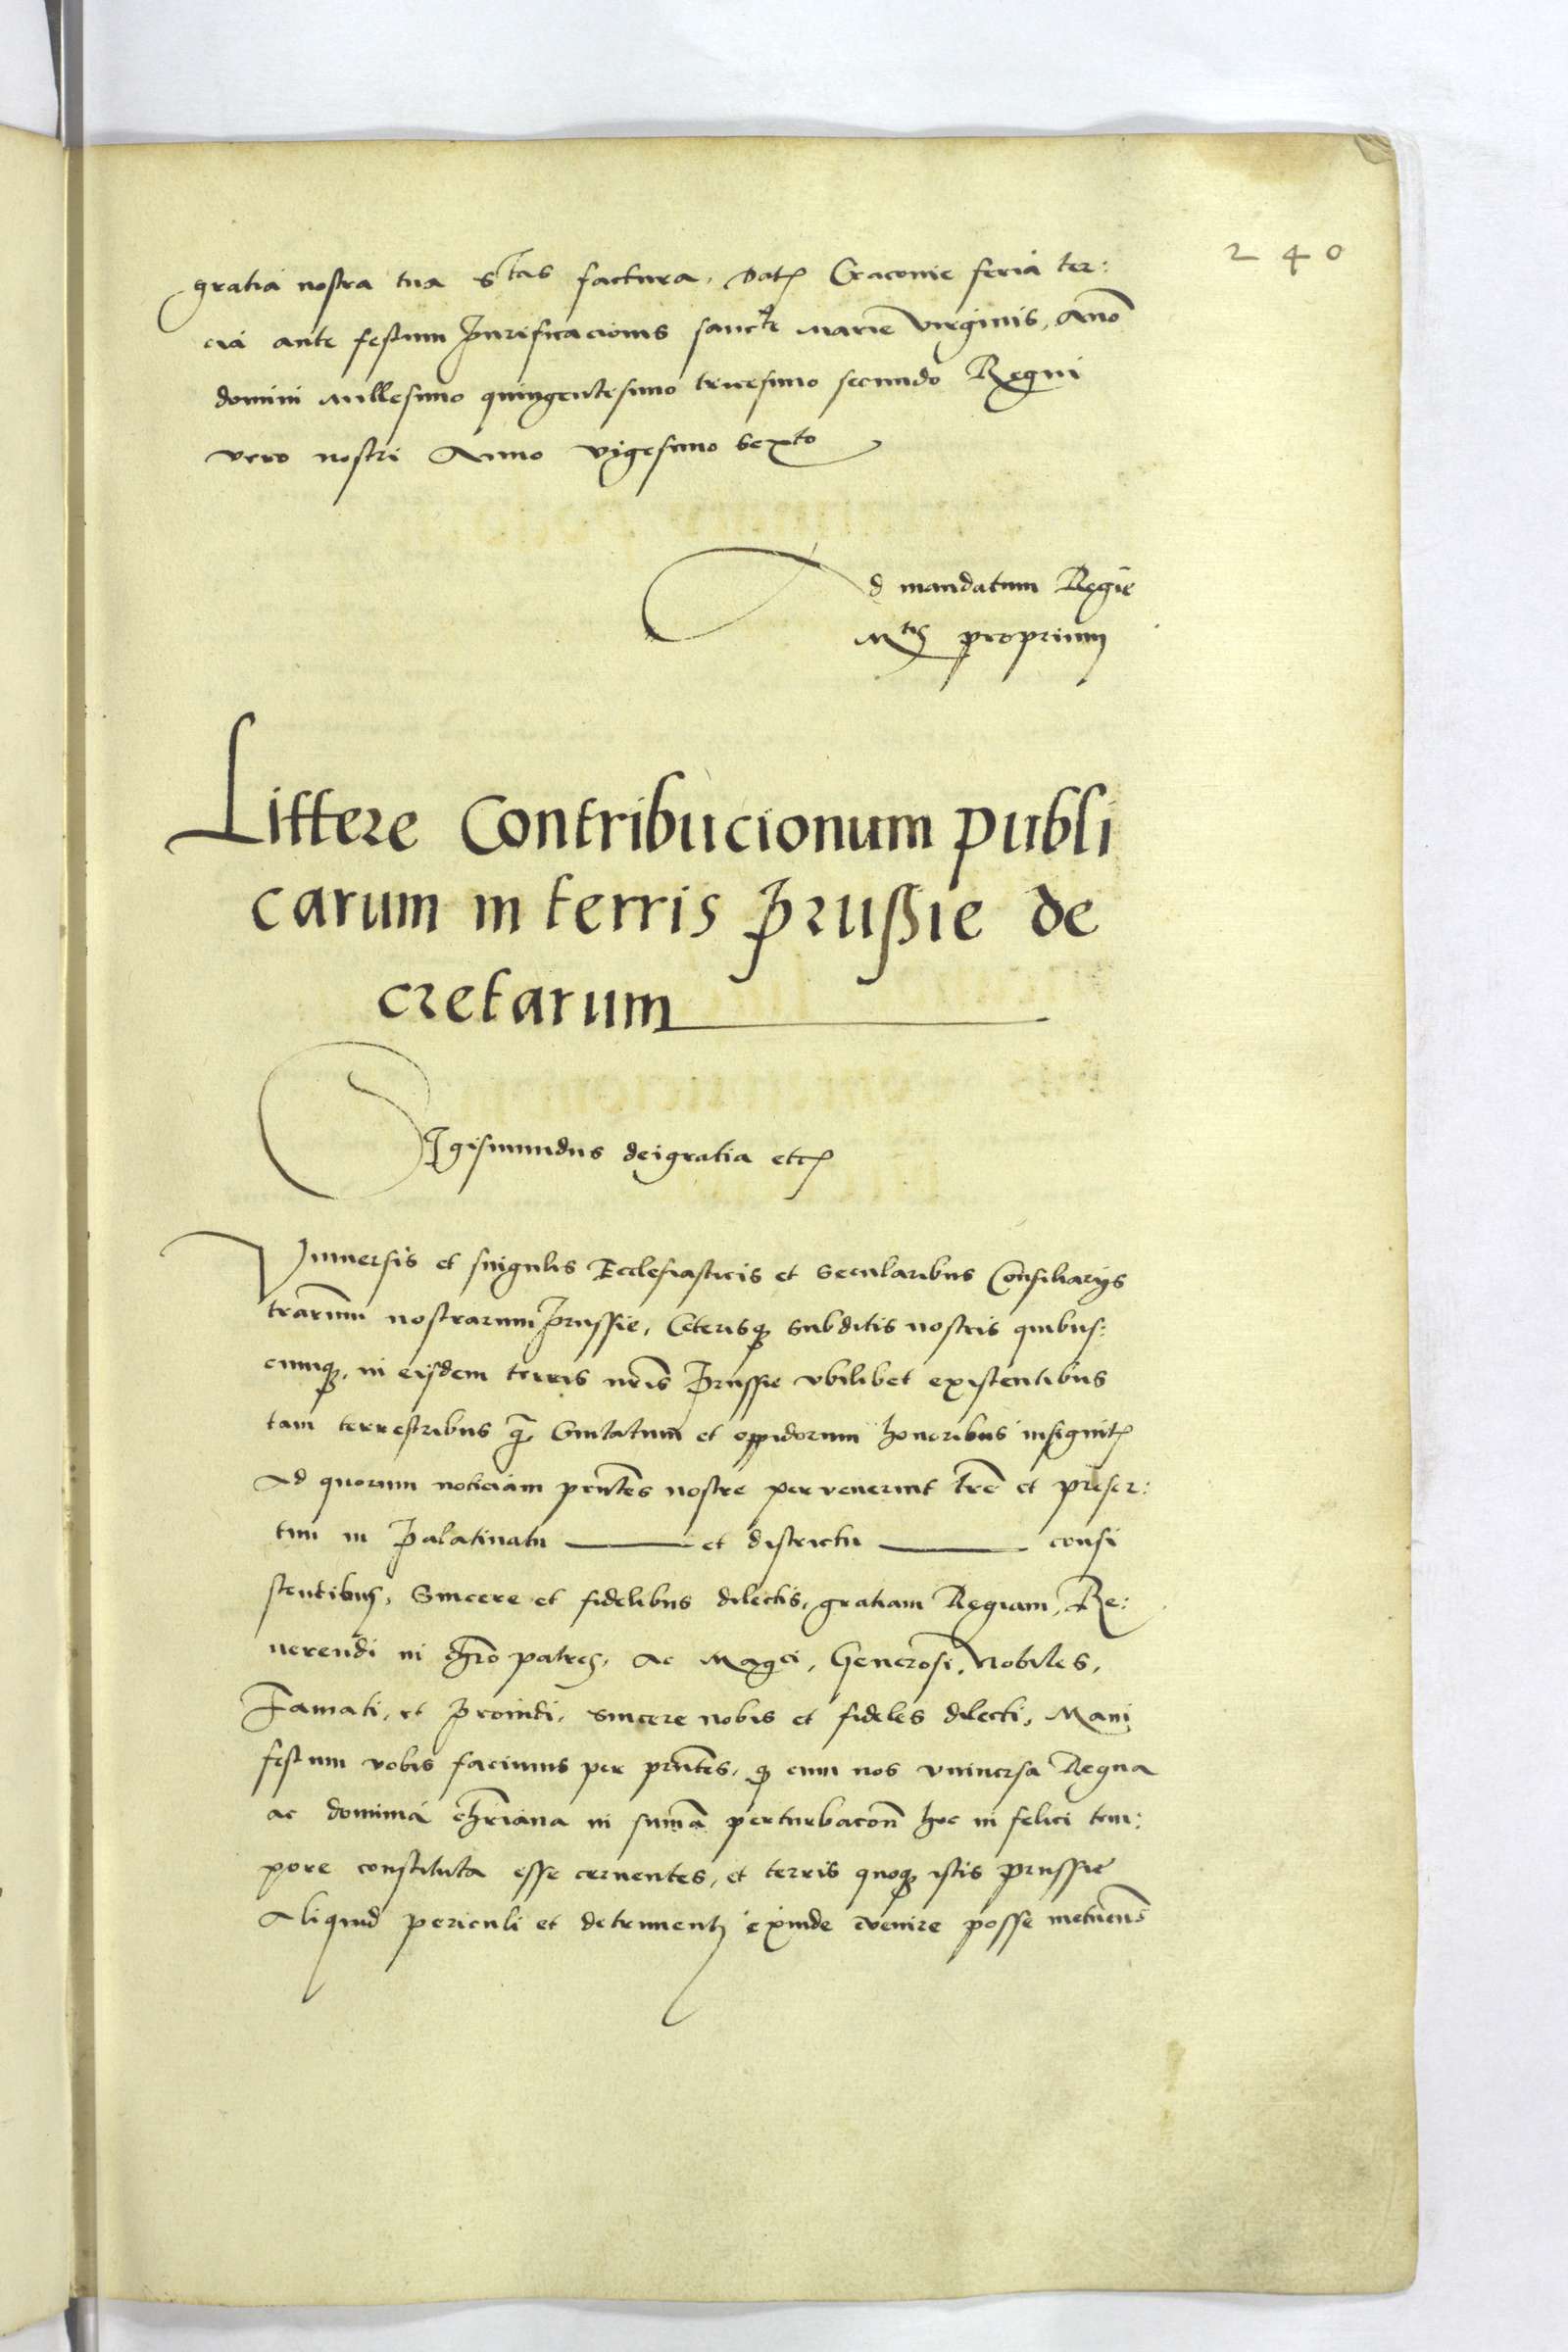 240
gratia nostra tua Stas factura. Dat Cracovie feria ter:
cia ante festum Purificacionis sancte Marie virginis, Anno
domini millesimo quingentesimo tricesimo secundo Regni
vero nostri Anno vigesimo sexto
Ad mandatum Regie
Mtis proprium
Littere Contribucionum publi
carum in terris Prussie de
cretarum
Sigismundus dei gratia etc
Universis et singulis Ecclesiasticis et secularibus Consiliariis
trarum nostrarum Prussie, Ceterisque subditis nostris quibus:
cumque, in eisdem terris nris Prussie ubilibet existentibus
tam terrestribus q Civitatum et oppidorum honoribus insignit
Ad quorum noticiam pntes nostre pervenerint tre et preser:
tim in Palatinatu et districtu consi
stentibus, Sincere et fidelibus dilectis, gratiam Regiam, Re:
verendi in chro patres, ac Magci, Generosi, Nobiles,
Famati, et Providi, sincere nobis et fideles dilecti, Mani
festum vobis facimus per pntes, q cum nos universa Regna
ac dominia christiana in suma perturbacon hoc in felici tem:
pore constituta esse cernentes, et terris quoque istis Prussie
Aliquid periculi et detrimenti exinde evenire posse metuens